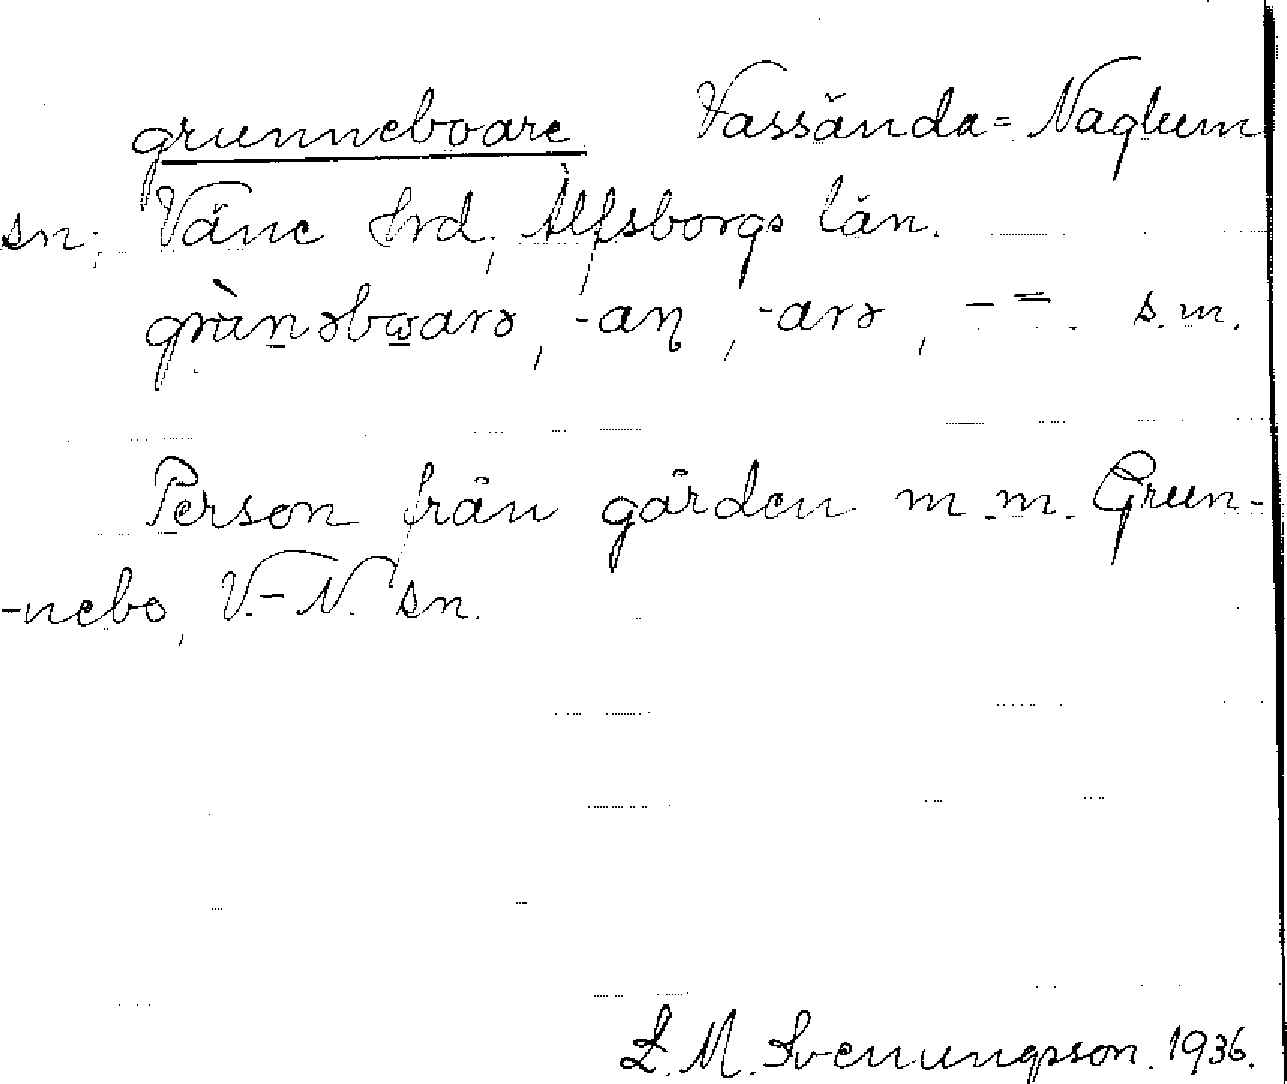 grunneboare Vassända=Naglum
sn; Väne Hrd, Älfsborgs län.
grùn̲əbωarə, -aɳ, -arə, - =. s.m.
Person från gården m.m. Grun-
-nebo, V.-N. sn.
L. M. Svenungsson. 1936.